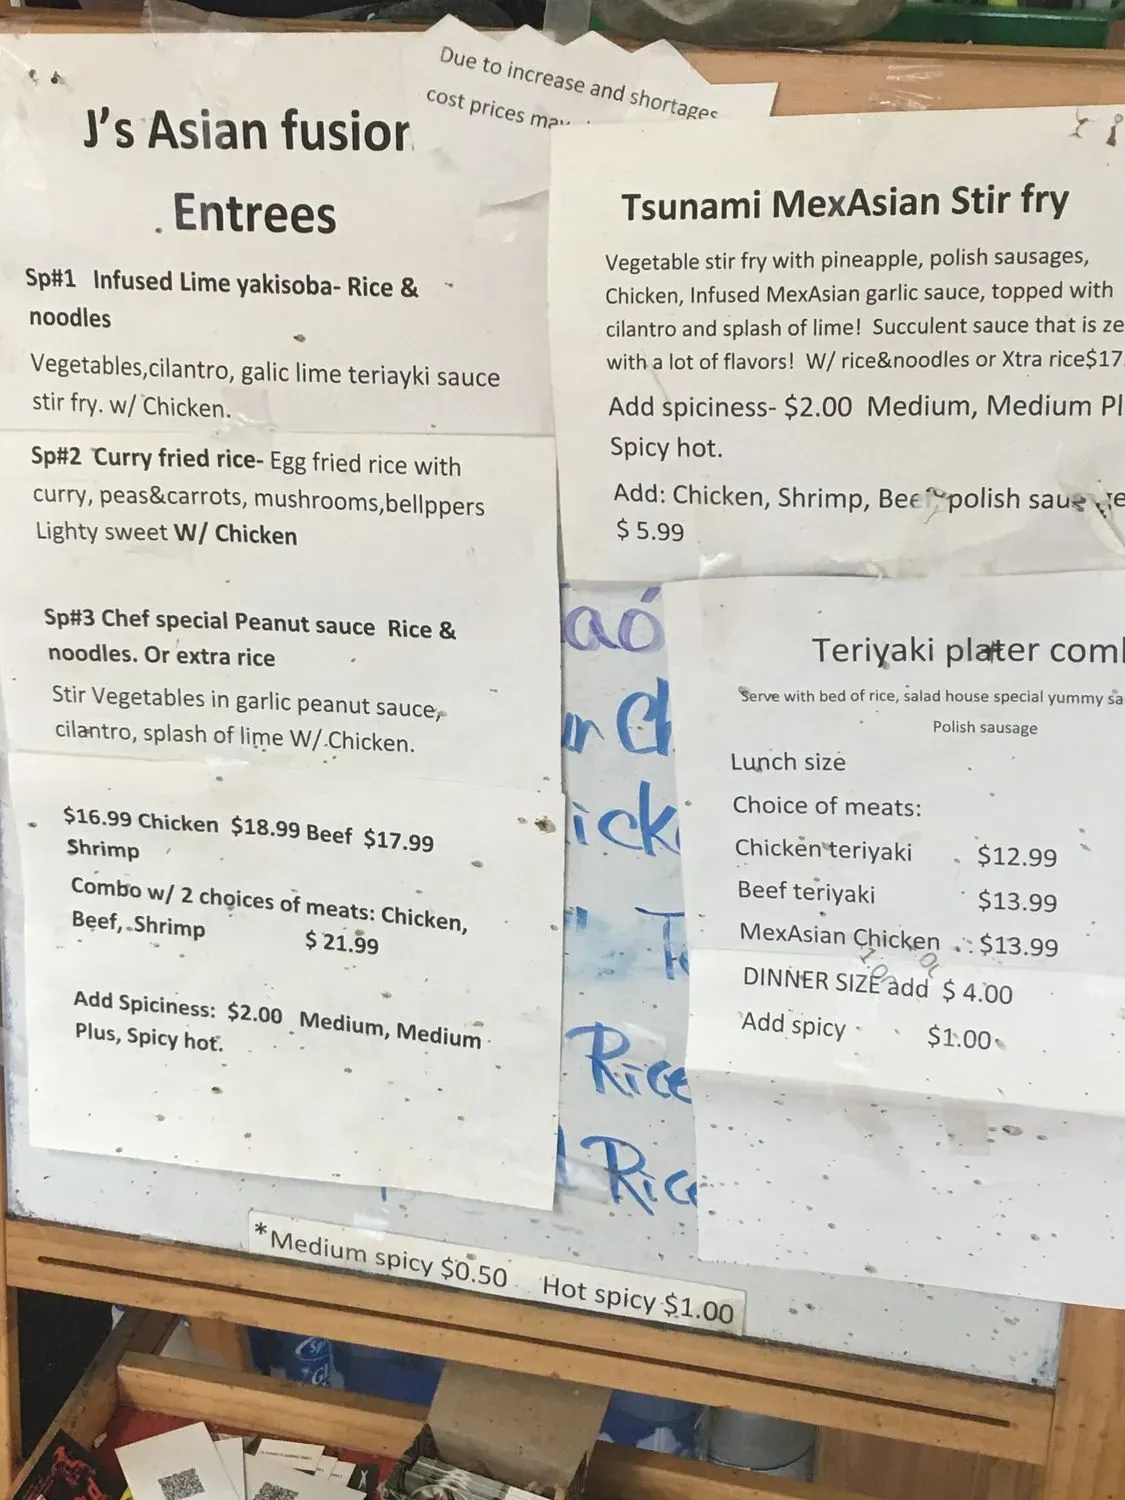 Due to increase and shortages
cost prices may
J's Asian fusion
Entrees
Sp#1 Infused Lime yakisoba- Rice &
noodles
Vegetables,cilantro, galic lime teriayki sauce
stir fry. w/ Chicken.
Sp#2 Curry fried rice- Egg fried rice with
curry, peas&carrots, mushrooms,bellppers
Lighty sweet W/ Chicken
Sp#3 Chef special Peanut sauce Rice &
noodles. Or extra rice
Stir Vegetables in garlic peanut sauce,
cilantro, splash of lime W/ Chicken.
$16.99 Chicken $18.99 Beef $17.99
Shrimp
Combo w/ 2 choices of meats: Chicken,
Beef, Shrimp $ 21.99
Add Spiciness: $2.00 Medium, Medium
Plus, Spicy hot.
Tsunami MexAsian Stir fry
Vegetable stir fry with pineapple, polish sausages,
Chicken, Infused MexAsian garlic sauce, topped with
cilantro and splash of lime! Succulent sauce that is ze
with a lot of flavors! W/ rice&noodles or Xtra rice$17.
Add spiciness- $2.00 Medium, Medium Pl
Spicy hot.
Add: Chicken, Shrimp, Beef, polish sausage
$ 5.99
Teriyaki plater com
Serve with bed of rice, salad house special yummy sa
Polish sausage
Lunch size
Choice of meats:
Chicken teriyaki $12.99
Beef teriyaki $13.99
MexAsian Chicken $13.99
DINNER SIZE add $ 4.00
Add spicy $1.00
Rice
Rice
*Medium spicy $0.50 Hot spicy $1.00